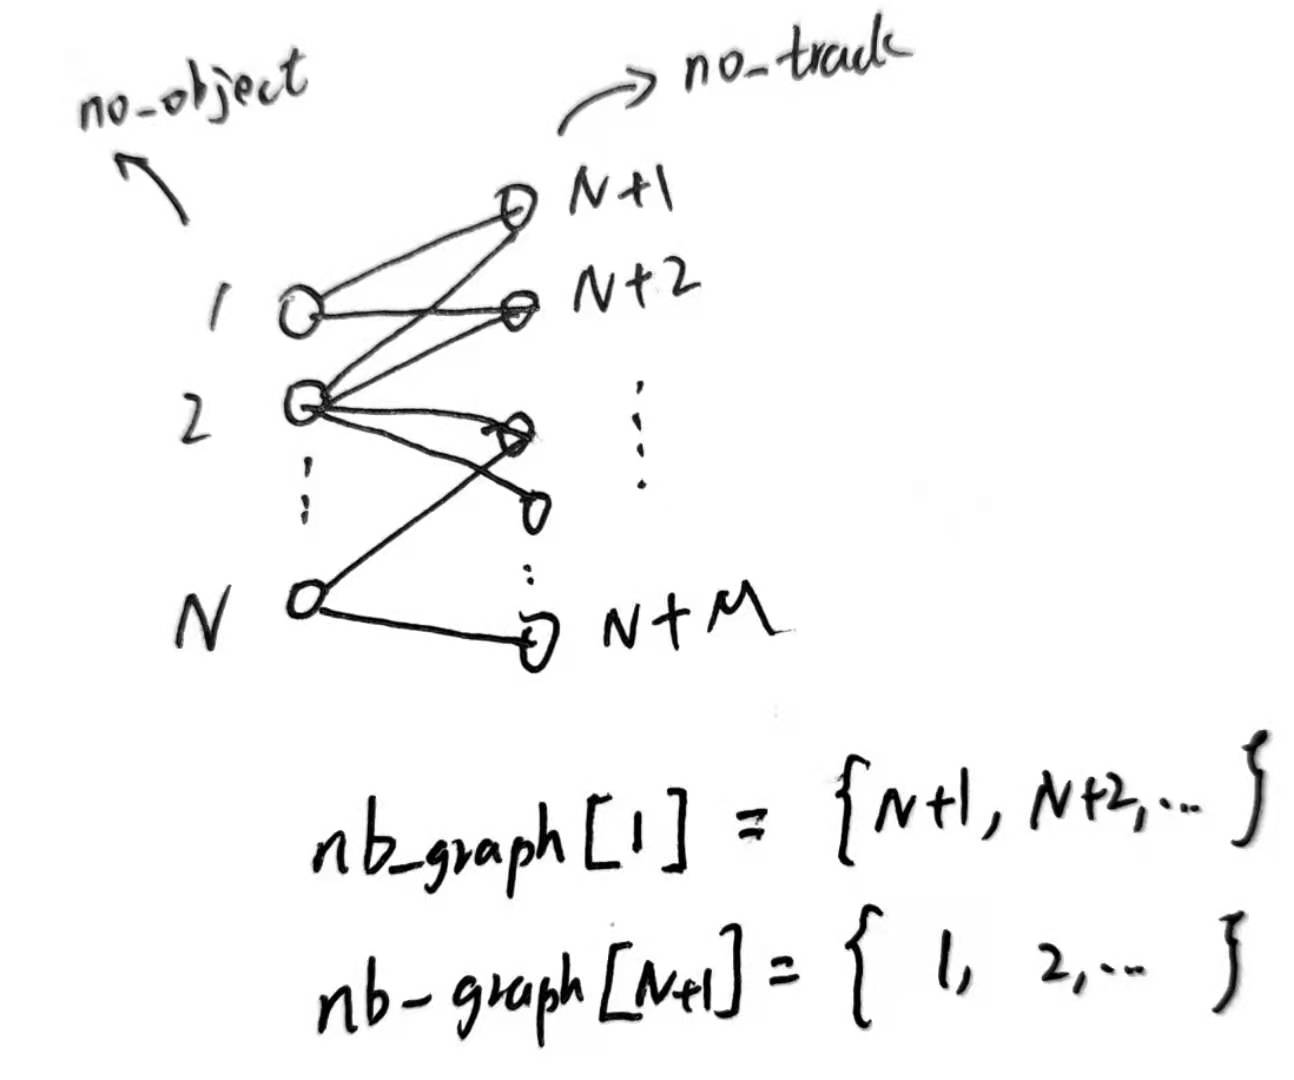 no_object
no_track
N+1
1
N+2
2
N
N+M
nb_graph[1] = {N+1, N+2,... }
nb-graph[N+1] = { 1, 2,... }